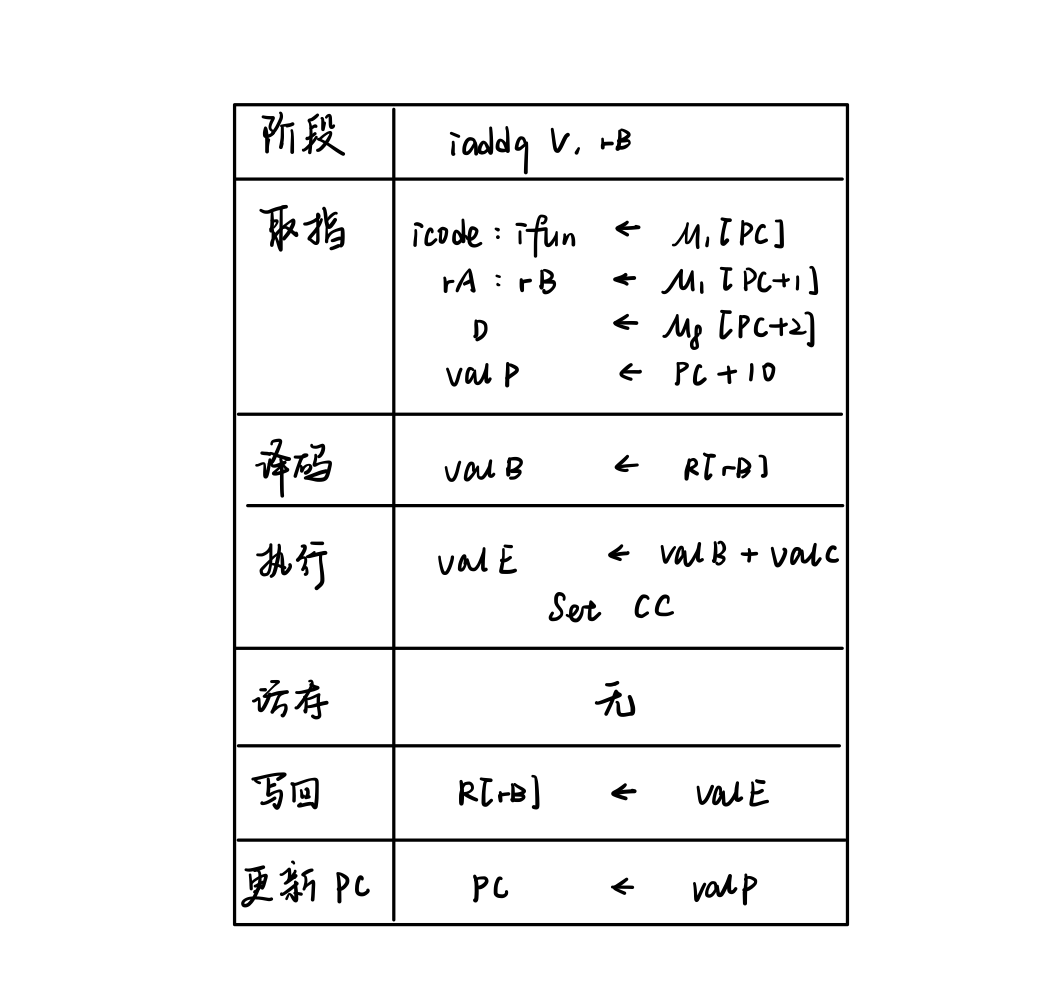 阶段 iaddq V, rB
取指 icode : ifun ← M₁[PC]
rA : rB ← M₁[PC+1]
D ← M₈[PC+2]
valP ← PC+10
译码 valB ← R[rB]
执行 valE ← valB + valC
Set CC
访存 无
写回 R[rB] ← valE
更新 PC PC ← valP